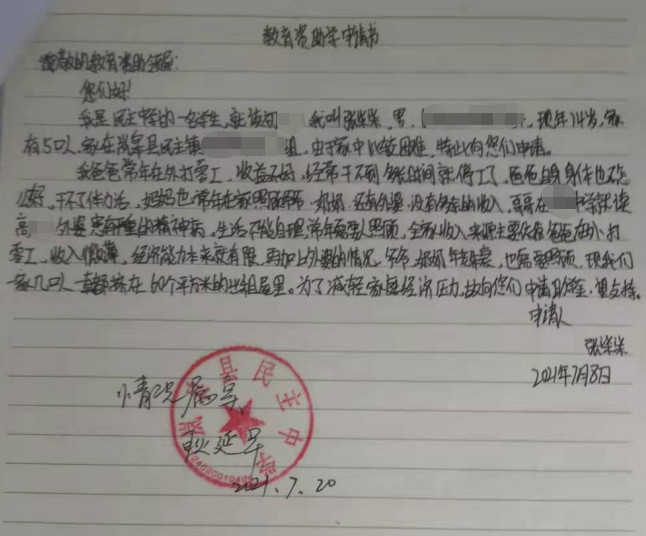 教育资助学申请书
尊敬的教育资助领导:
您们好!
我是民主中学的一名学生,就读初 我叫张 ,男, ,现年14岁,家
有5口人,家在岚皋县民主镇 组,由于家中比较困难,特此向您们申请。
我爸爸常年在外打零工,收益不好,经常干不到多长时间就停工了,爸爸的身体也不怎
么好,干不了体力活,妈妈也常年在家照顾爷爷、奶奶,还有外婆,没有多余的收入,哥哥在 中学就读
高 外婆患有严重的精神病,生活不能自理,常年需要人照顾,全家收入来源主要依靠爸爸在外打
零工,收入微薄,经济能力本来就有限,再加上外婆的情况,爷爷、奶奶年龄 ,也需要照顾,现我们
一家几口人一直都挤在60个平方米的出租屋里。为了减轻家庭经济压力,故向您们申请助学金,望支持。
申请人
张
2021年7月8日
情况属实
耿延军
县民主中
2021.7.20